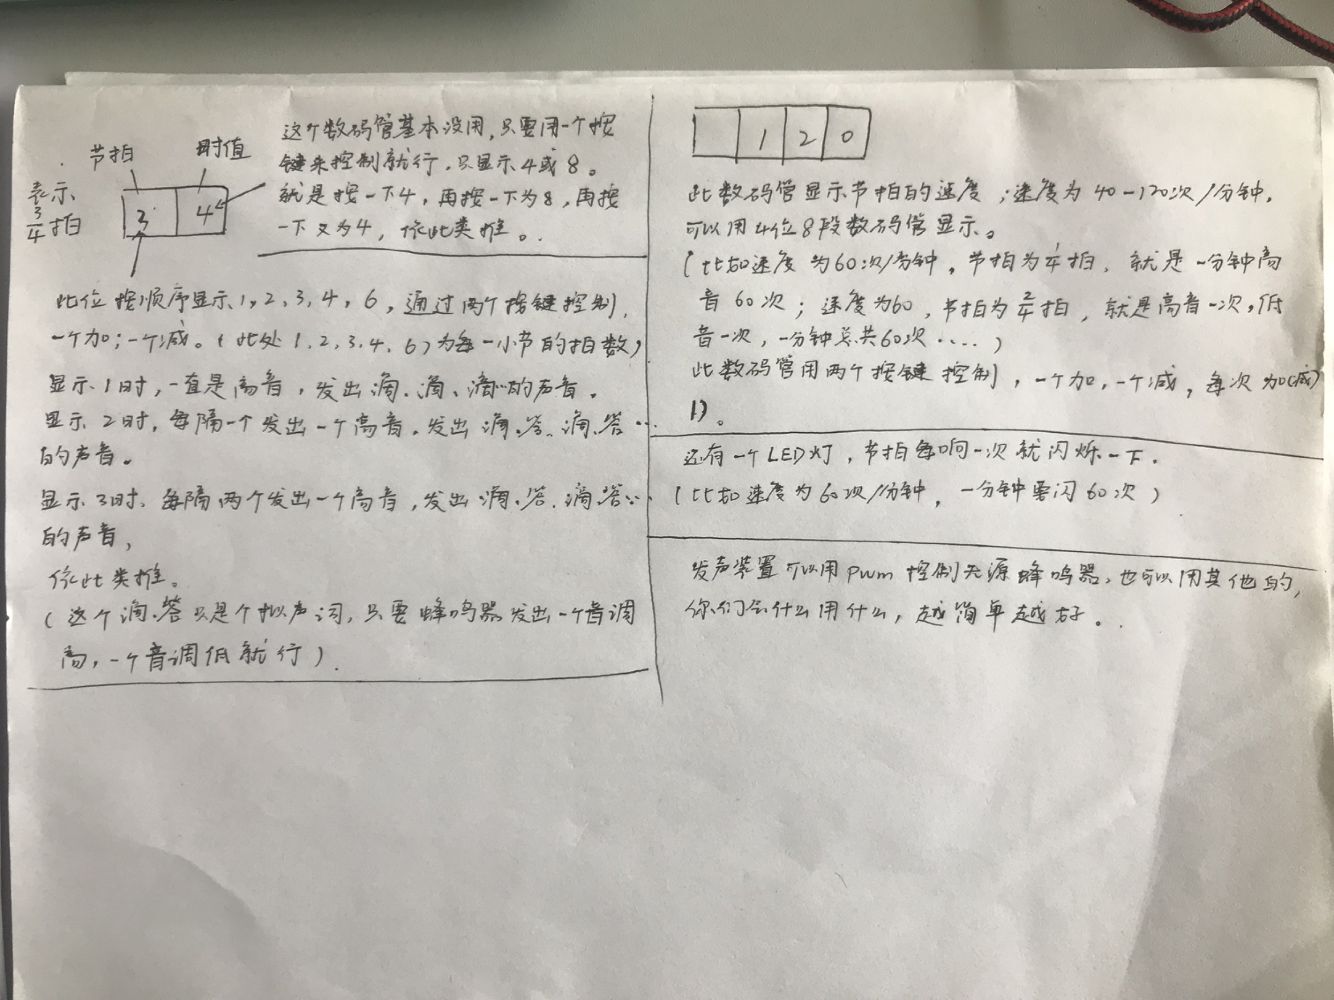 节拍
时值
表示
3/4拍
3
4
这个数码管基本没用,只要用一个按
键来控制就行,只显示4或8。
就是按一下4,再按一下为8,再按
一下又为4,依此类推。
此位按顺序显示1,2,3,4,6,通过两个按键控制,
一个加;一个减。(此处1,2,3,4,6)为每一小节的拍数)
显示1时,一直是高音,发出滴、滴、滴…的声音。
显示2时,每隔一个发出一个高音,发出滴、答、滴、答…
的声音。
显示3时,每隔两个发出一个高音,发出滴、答、滴、答…
的声音,
依此类推。
(这个滴、答只是个拟声词,只要蜂鸣器发出一个音调
高,一个音调低就行).
1 2 0
此数码管显示节拍的速度;速度为40-120次/分钟,
可以用4位8段数码管显示。
(比如速度为60次/分钟,节拍为1/4拍,就是一分钟高
音60次;速度为60,节拍为2/4拍,就是高音一次,低
音一次,一分钟总共60次....)
此数码管用两个按键控制,一个加,一个减,每次加(减)
1)。
还有一个LED灯,节拍每响一次就闪烁一下.
(比如速度为60次/分钟,一分钟要闪60次)
发声装置可以用pwm控制无源蜂鸣器,也可以用其他的,
你们会什么用什么,越简单越好。